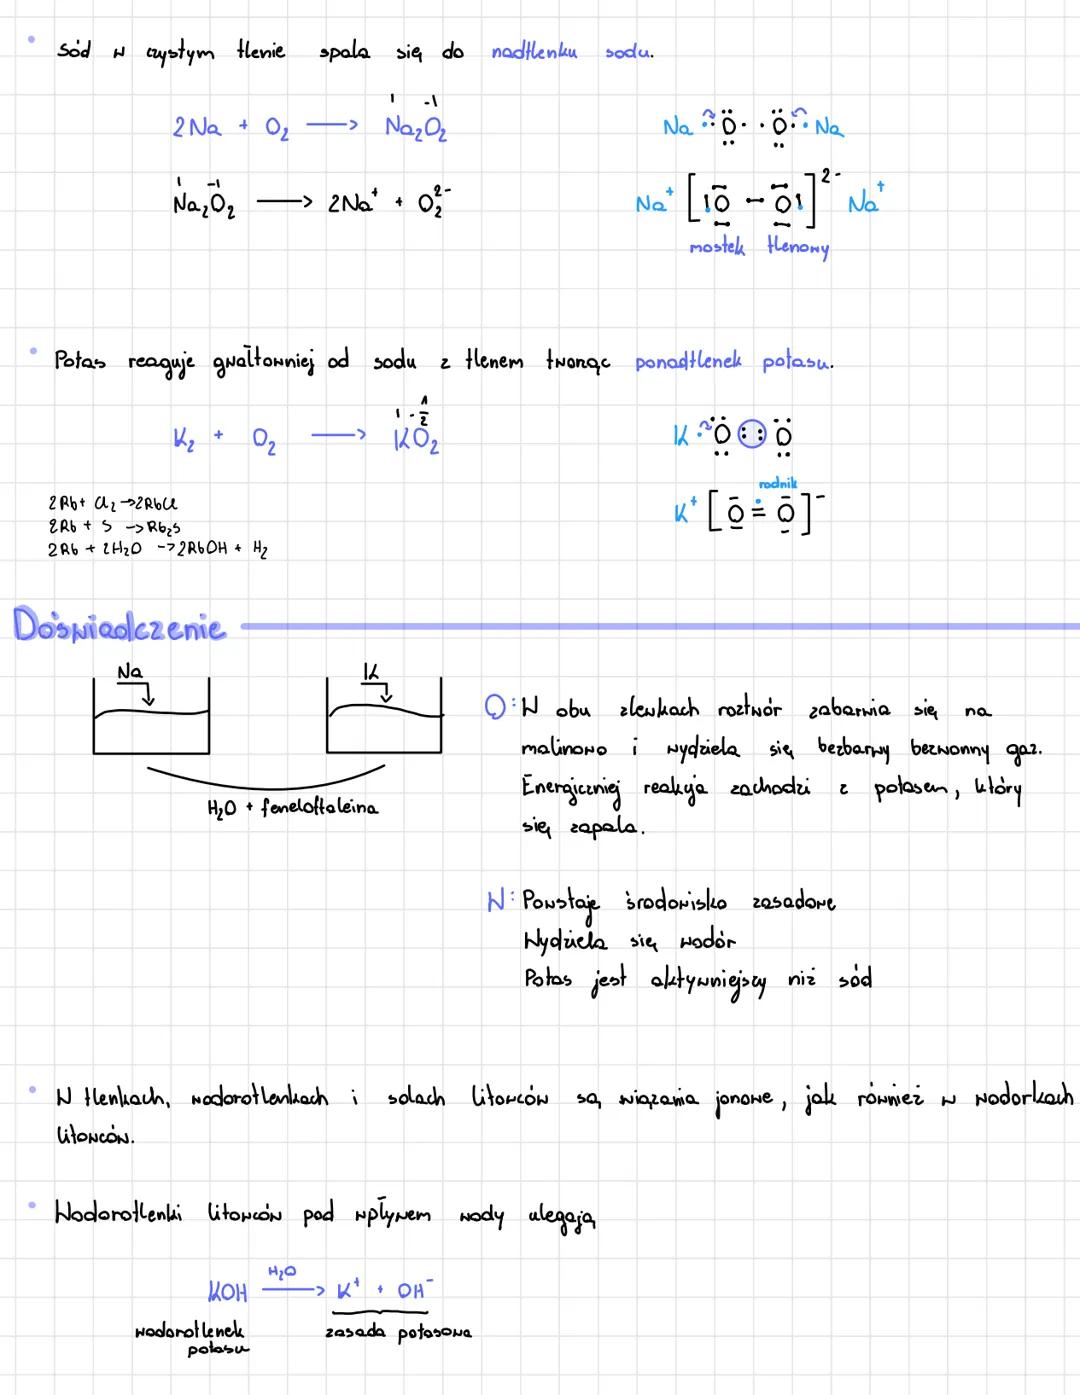 • Sód w czystym tlenie spala się do nadtlenku sodu.
2Na + O₂ ⟶ Na₂O₂
I -I
Na ∙∙ Ö ∙ ∙ Ö ∙∙ Na
Na₂O₂ ⟶ 2Na⁺ + O₂²⁻
I -I
Na⁺ [|O – O|]²⁻ Na⁺
mostek tlenowy
• Potas reaguje gwałtowniej od sodu z tlenem tworząc ponadtlenek potasu.
K₂ + O₂ ⟶ KO₂
I -1/2
K ∙∙ Ö :: Ö
2Rb + Cl₂ → 2RbCl
2Rb + S → Rb₂S
2Rb + 2H₂O → 2RbOH + H₂
rodnik
K⁺ [O = O]⁻
Doświadczenie
Na
K
H₂O + feneloftaleina
O: W obu zlewkach roztwór zabarwia się na
malinowo i wydziela się bezbarwy bezwonny gaz.
Energiczniej reakcja zachodzi z potasem, który
się zapala.
W: Powstaje środowisko zasadowe
Wydziela się wodór
Potas jest aktywniejszy niż sód
• W tlenkach, wodorotlenkach i solach litowców są wiązania jonowe, jak również w wodorkach
litowców.
• Wodorotlenki litowców pod wpływem wody ulegają
KOH ⟶ K⁺ + OH⁻
H₂O
wodorotlenek
potasu
zasada potasowa